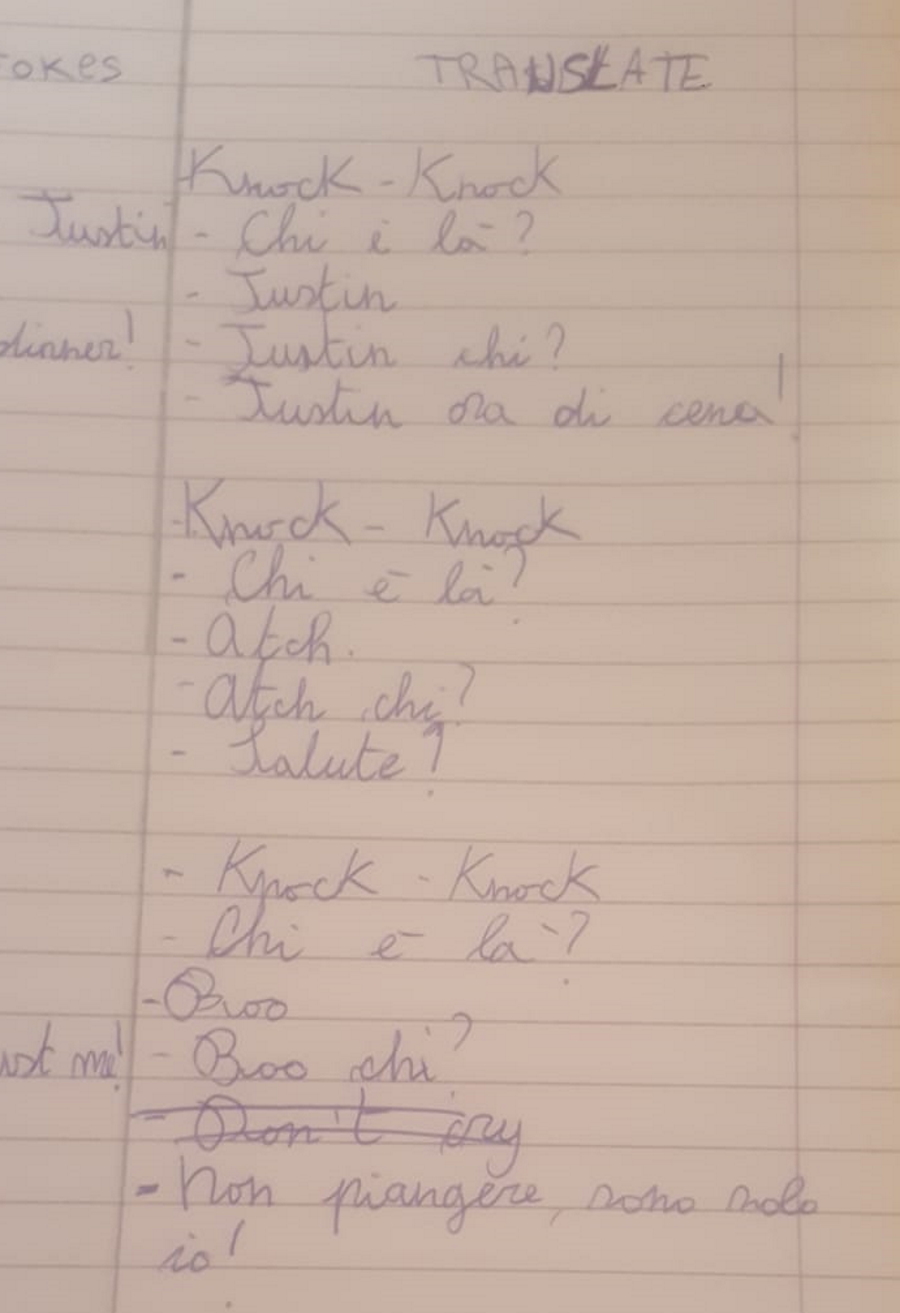 Jokes TRANSLATE
- Knock - Knock
Justin - Chi è là?
- Justin
dinner! - Justin chi?
- Justin ora di cena!
- Knock - Knock
- Chi è là?
- Atch.
- Atch chi?
- Salute!
- Knock - Knock
- Chi è là?
- Boo
just me! - Boo chi?
- Don't cry
- Non piangere, sono solo
io!